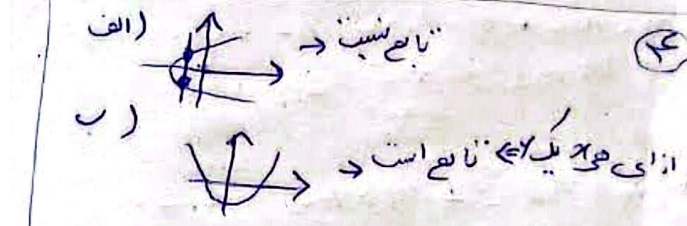 ۴
الف) تابع نیست
ب)
ازای هر x یک y ⇐ تابع است